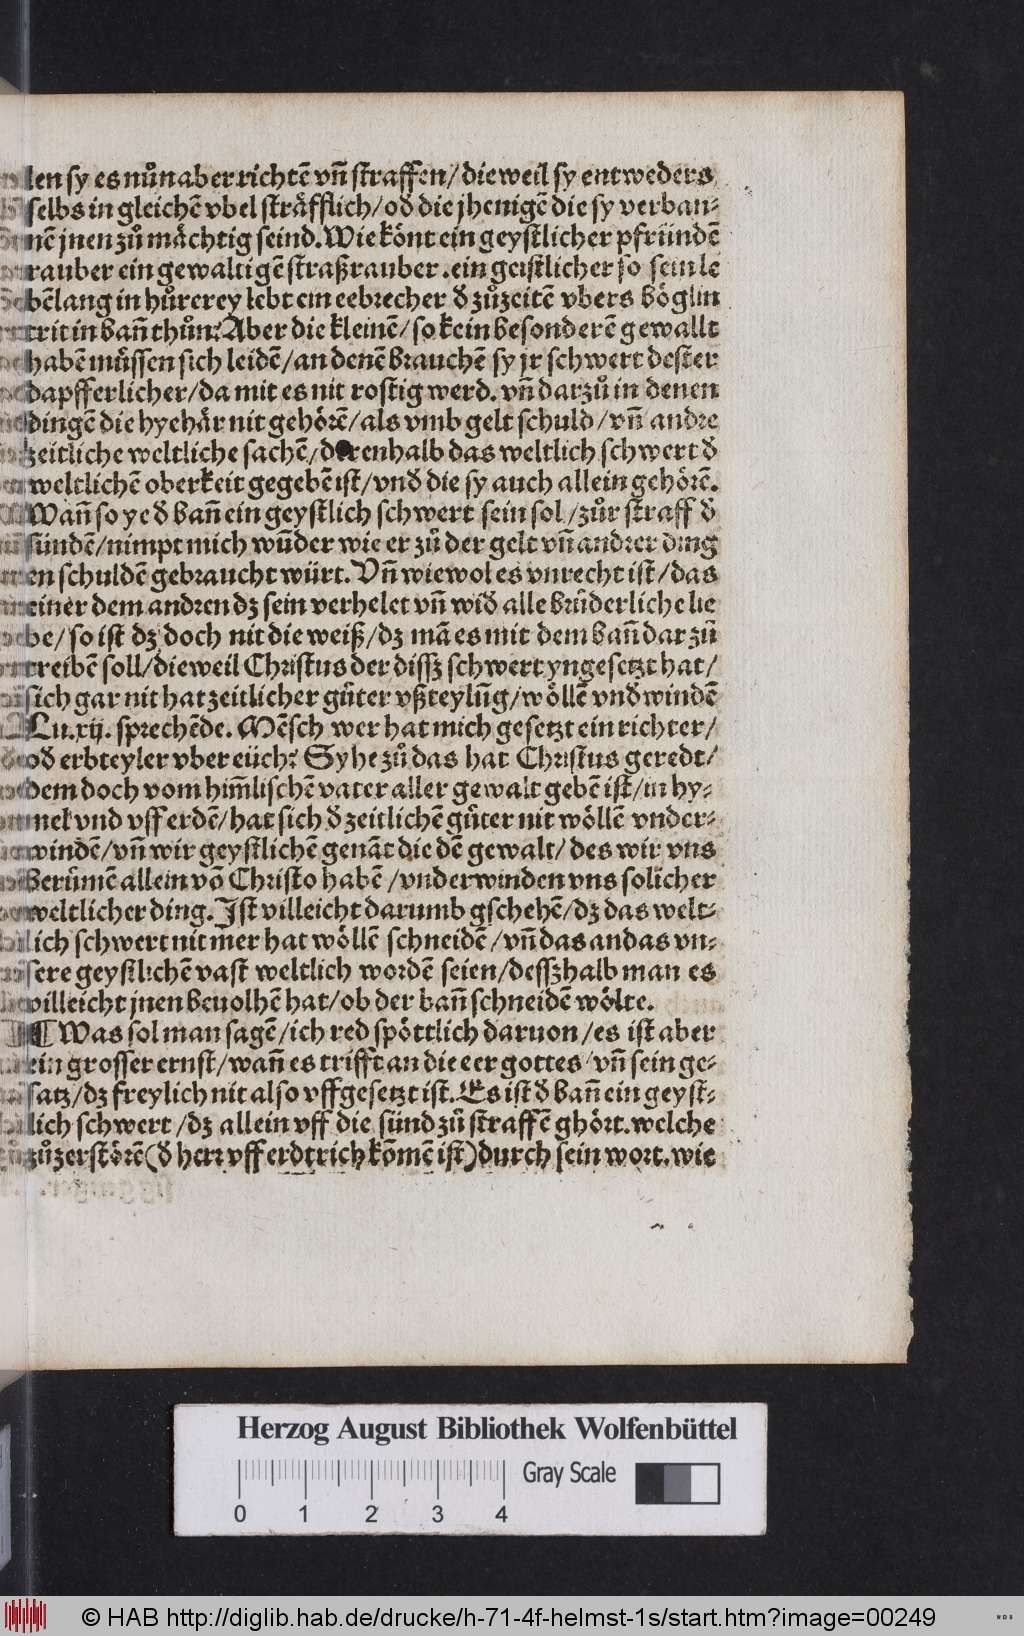 len sy es nůn aber richtē vñ straffen/ die weil sy entweders
selbs in gleichē vbel sträfflich/ od̄ die jhenigē die sy verban⸗
nē jnen zů mächtig seind. Wie könt ein geystlicher pfründē
rauber ein gewaltigē straßrauber. ein geistlicher so sein le
bēlang in hůrerey lebt ein eebrecher d̄ zůzeitē vbers böglin
trit in bañ thůn: Aber die kleinē/ so kein besonderē gewallt
habē müssen sich leidē/ an denē brauchē sy jr schwert dester
dapfferlicher/ da mit es nit rostig werd. vñ darzů in denen
dingē die hyehär nit gehörē/ als vmb gelt schuld/ vñ andre
zeitliche weltliche sachē/ derenhalb das weltlich schwert d̄
weltlichē oberkeit gegebē ist/ vnd̄ die sy auch allein gehörē.
Wañ so ye d̄ bañ ein geystlich schwert sein sol/ zůr straff d̄
sündē/ nimpt mich wūder wie er zů der gelt vñ andrer ding
en schuldē gebraucht würt. Vñ wiewol es vnrecht ist/ das
einer dem andren dz sein verhelet vñ wid̄ alle brüderliche lie
be/ so ist dz doch nit die weiß/ dz mā es mit dem bañ dar zů
treibē soll/ dieweil Christus der dissz schwert yngesetzt hat/
sich gar nit hat zeitlicher gůter vßteylūg/ wöllē vnd̄windē
Lu.xij. sprechēde. Mēsch wer hat mich gesetzt ein richter/
od̄ erbteyler vber eüch: Syhe zů das hat Christus geredt/
dem doch vom him̄lischē vater aller gewalt gebē ist/ in hy⸗
mel vnd vff erdē/ hat sich d̄ zeitlichē güter nit wöllē vnder⸗
windē/ vñ wir geystlichē genāt die dē gewalt/ des wir vns
berümē allein vō Christo habē/ vnderwinden vns solicher
weltlicher ding. Ist villeicht darumb gschehē/ dz das welt⸗
lich schwert nit mer hat wöllē schneidē/ vñ das an das vn⸗
sere geystlichē vast weltlich wordē seien/ desszhalb man es
villeicht jnen beuolhē hat/ ob der bañ schneidē wölte.
¶ Was sol man sagē/ ich red spöttlich daruon/ es ist aber
ein grosser ernst/ wañ es trifft an die eer gottes/ vñ sein ge⸗
satz/ dz freylich nit also vffgesetzt ist. Es ist d̄ bañ ein geyst⸗
lich schwert/ dz allein vff die sünd zů straffē ghört. welche
zůzerstörē (d̄ herr vff erdtrich kōmē ist) durch sein wort. wie
Herzog August Bibliothek Wolfenbüttel
Gray Scale
0 1 2 3 4
© HAB http://diglib.hab.de/drucke/h-71-4f-helmst-1s/start.htm?image=00249